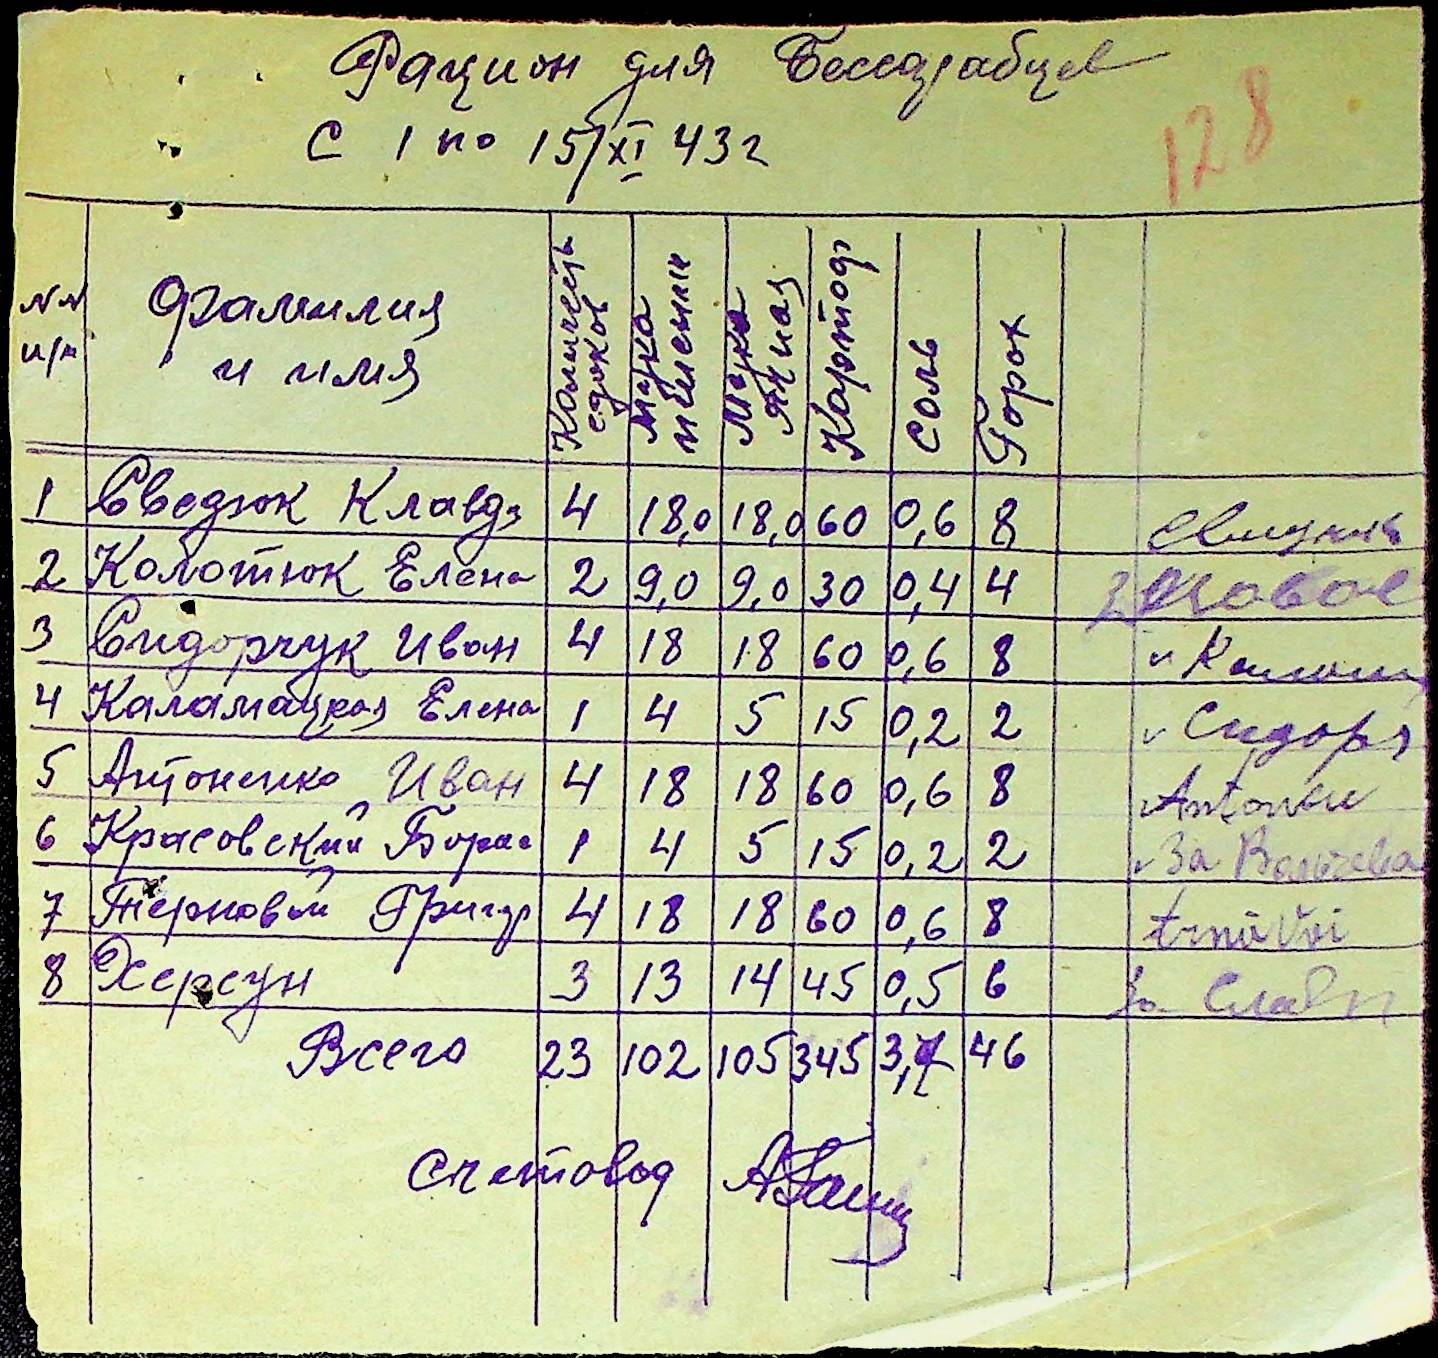 Рацион для Бессарабцев
С 1 по 15/XI 43 г
128
NN п/п Фамилия и имя Количеств едоков Мука пшеничн Мука ячная Картофь Соль Горох
1 Сведюк Клавдз 4 18,0 18,0 60 0,6 8
2 Колотюк Елена 2 9,0 9,0 30 0,4 4
3 Сидорчук Иван 4 18 18 60 0,6 8
4 Каламацкая Елена 1 4 5 15 0,2 2 Сидорч
5 Антоненко Иван 4 18 18 60 0,6 8
6 Красовский Борис 1 4 5 15 0,2 2 За
7 Терновый Григор 4 18 18 60 0,6 8
8 Херсун 3 13 14 45 0,5 6 За
Всего 23 102 105 345 46
Счетовод